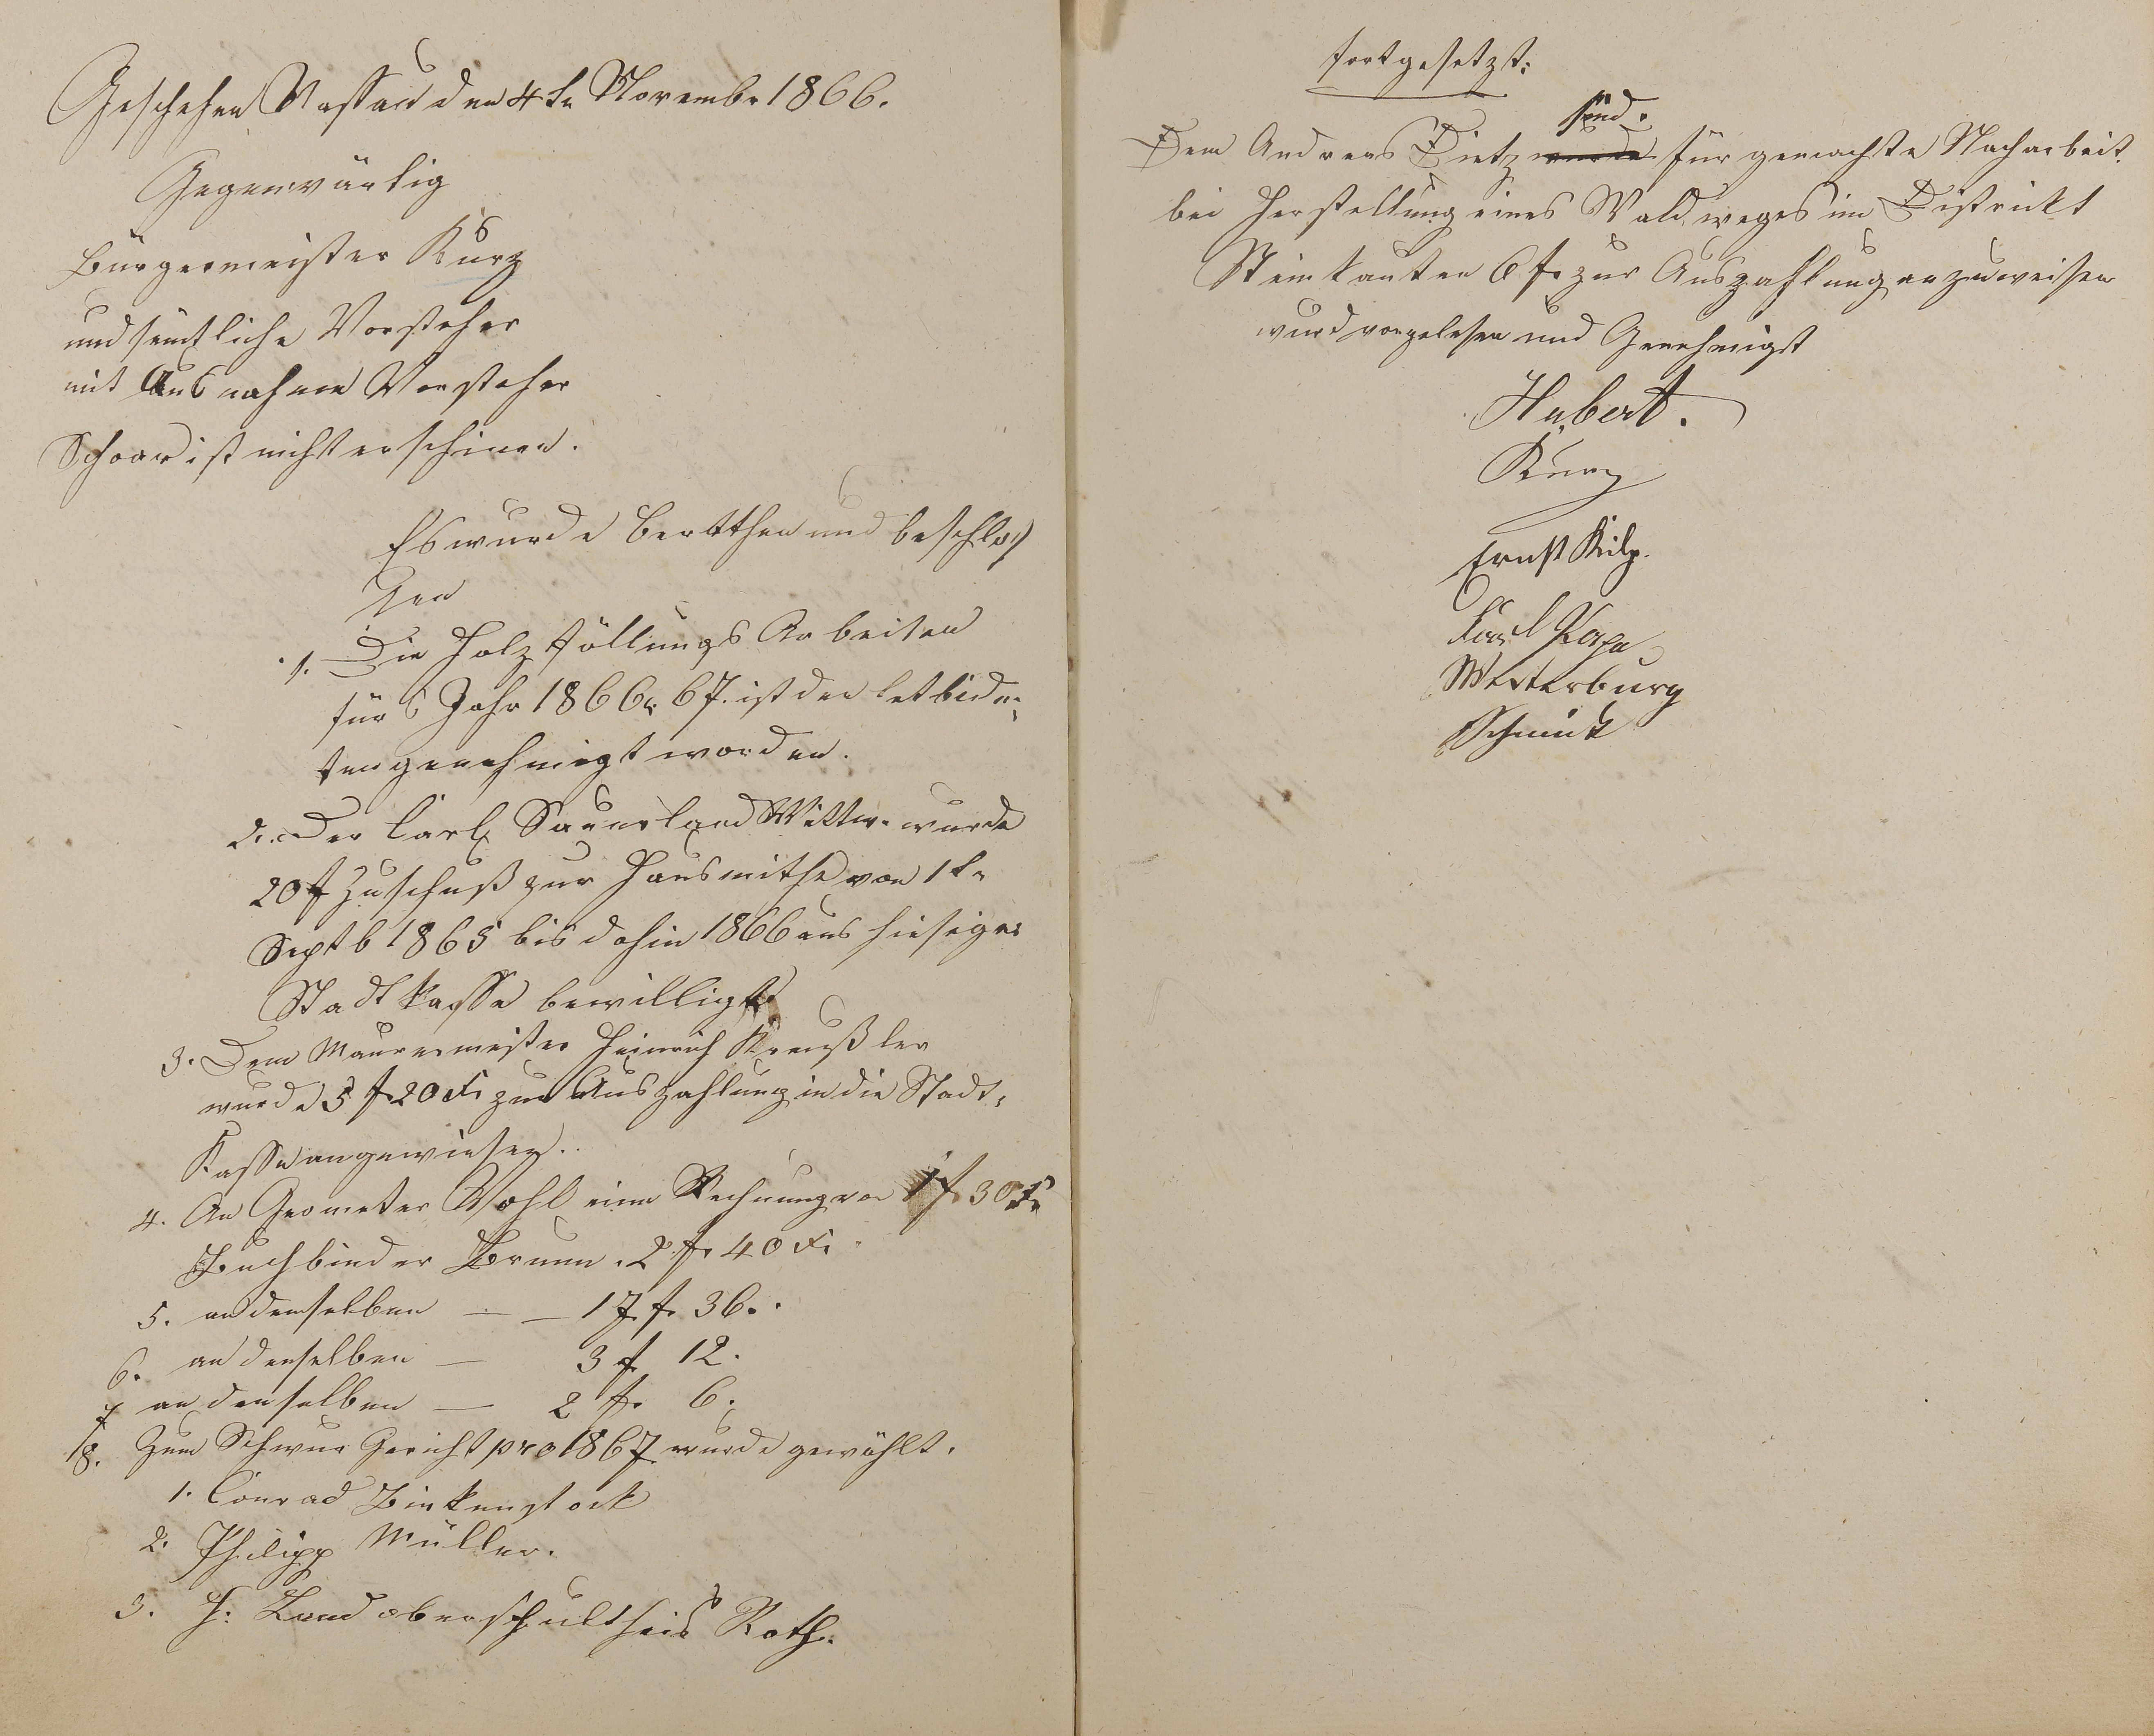 Geschehen Nassau den 4tn Novembr 1866.
Gegenwärtig
Bürgermeister Kurz
und sämtliche Vorsteher
mit Ausnahme Vorsteher
Schoar ist nicht erschinen.
Es wurde berathen und beschlos
sen
1. Die Holzfällungs Arbeiten
fürs Jahr 1866/67. ist den letbide-
ten genehmigt worden.
2. Der Carl Sauerland Wittw. wurde
20 f Zuschuß zur Hausmithe von 1t.
Septb 1865 bis dahin 1866 aus hiesiger
Stadtkasse bewilligt.
3. Dem Maurermeister Heinrich Kreußler
wurde 5 f 20 x zur Auszahlung in die Stadt-
Kasse angewiesen.
4. An Geometer Vohl eine Rechnung von 1 f. 30 x
Buchbinder Brumm. 2 f. 40 x
5. an denselben — — 17 f. 36.
6. an denselben — 3 f 12.
7 an denselben — 2 f. 6.
8. Zum Schwur Gericht pro 1867 wurde gewählt.
1. Conrad Binkenstock
2. Philipp Müller.
3. H: Landoberschultheis Roth.
fortgesetzt:
sind.
Dem Andreas Dietz wurde für gemachte Nacharbeit
bei Herstellung eines Waldweges im Districkt
Steinkauten 6 f. zur Auszahlung anzuweisen
wurd vorgelesen und Genehmigt
Hubert.
Kurz
Ernst Kilp.
Karl
Westerburg
Schmidt